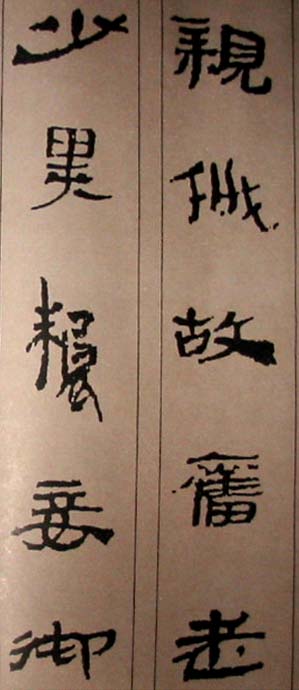 親戚故舊老
少異糧妾御